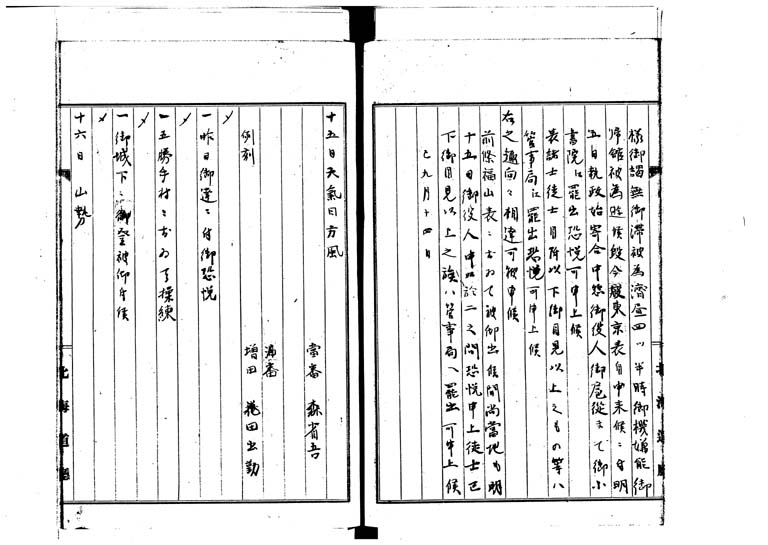 様御謁無御滞被為済昼四ツ半時御機嫌能御
帰館被為遊候段今度東京表ゟ申来候ニ付明
五日執政始寄合中惣御役人御扈従迄御小
書院江罷出恐悦可申上候
表諸士徒士目附以下御目見以上之もの等ハ
管事局江罷出恐悦可申上候
右之趣向々相達可被申候
前條福山表ニおゐて被仰出候間尚当地も明
十五日御役人中於二之間恐悦申上徒士已
下御目見以上之族ハ管事局へ罷出可申上候
己九月十四日
十五日天気日方風
当番 森省吾
例刻
増田 藤田出勤
一昨日御達ニ付御恐悦
一五勝手村ニおゐて操練
一御城下ニ御登被仰付候
十六日 山勢
北海道庁
北海道庁